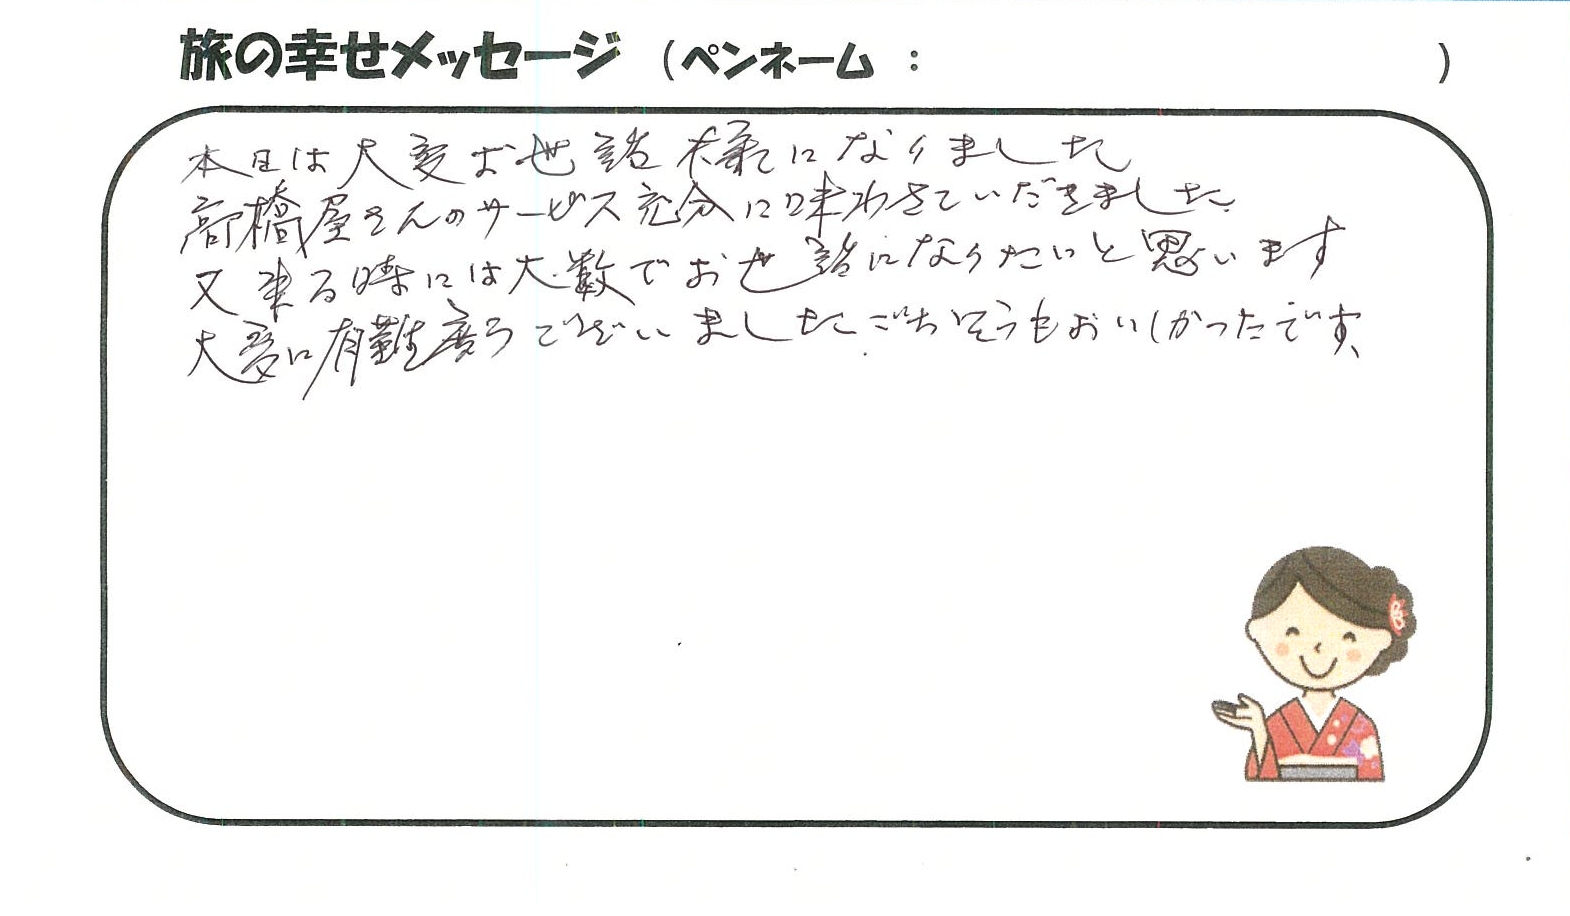 旅の幸せメッセージ (ペンネーム : )
本日は大変お世話様になりました
高橋屋さんのサービス充分に味わさていだきました。
又来る時には大数でお世話になりたいと思います
大変に有難度うございました。ごちそうもおいしかったです、